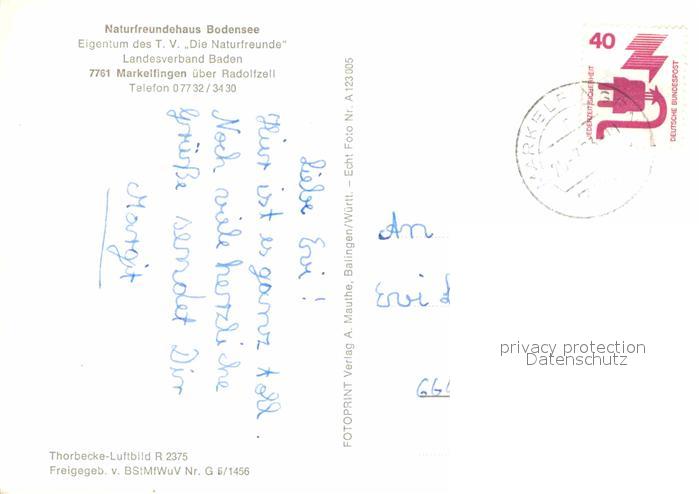 Naturfreundehaus Bodensee
Eigentum des T. V. „Die Naturfreunde“
Landesverband Baden
7761 Markelfingen über Radolfzell
Telefon 07732/3430
Liebe Evi!
Hier ist es ganz toll
Noch viele herzliche
Grüße sendet Dir
Margit
FOTOPRINT Verlag A. Mauthe, Balingen/Württ. – Echt Foto Nr. A 123 005
40
JEDERZEIT SICHERHEIT
DEUTSCHE BUNDESPOST
MARKELF
An
Evi
666
privacy protection
Datenschutz
Thorbecke-Luftbild R 2375
Freigegeb. v. BStMfWuV Nr. G 5/1456